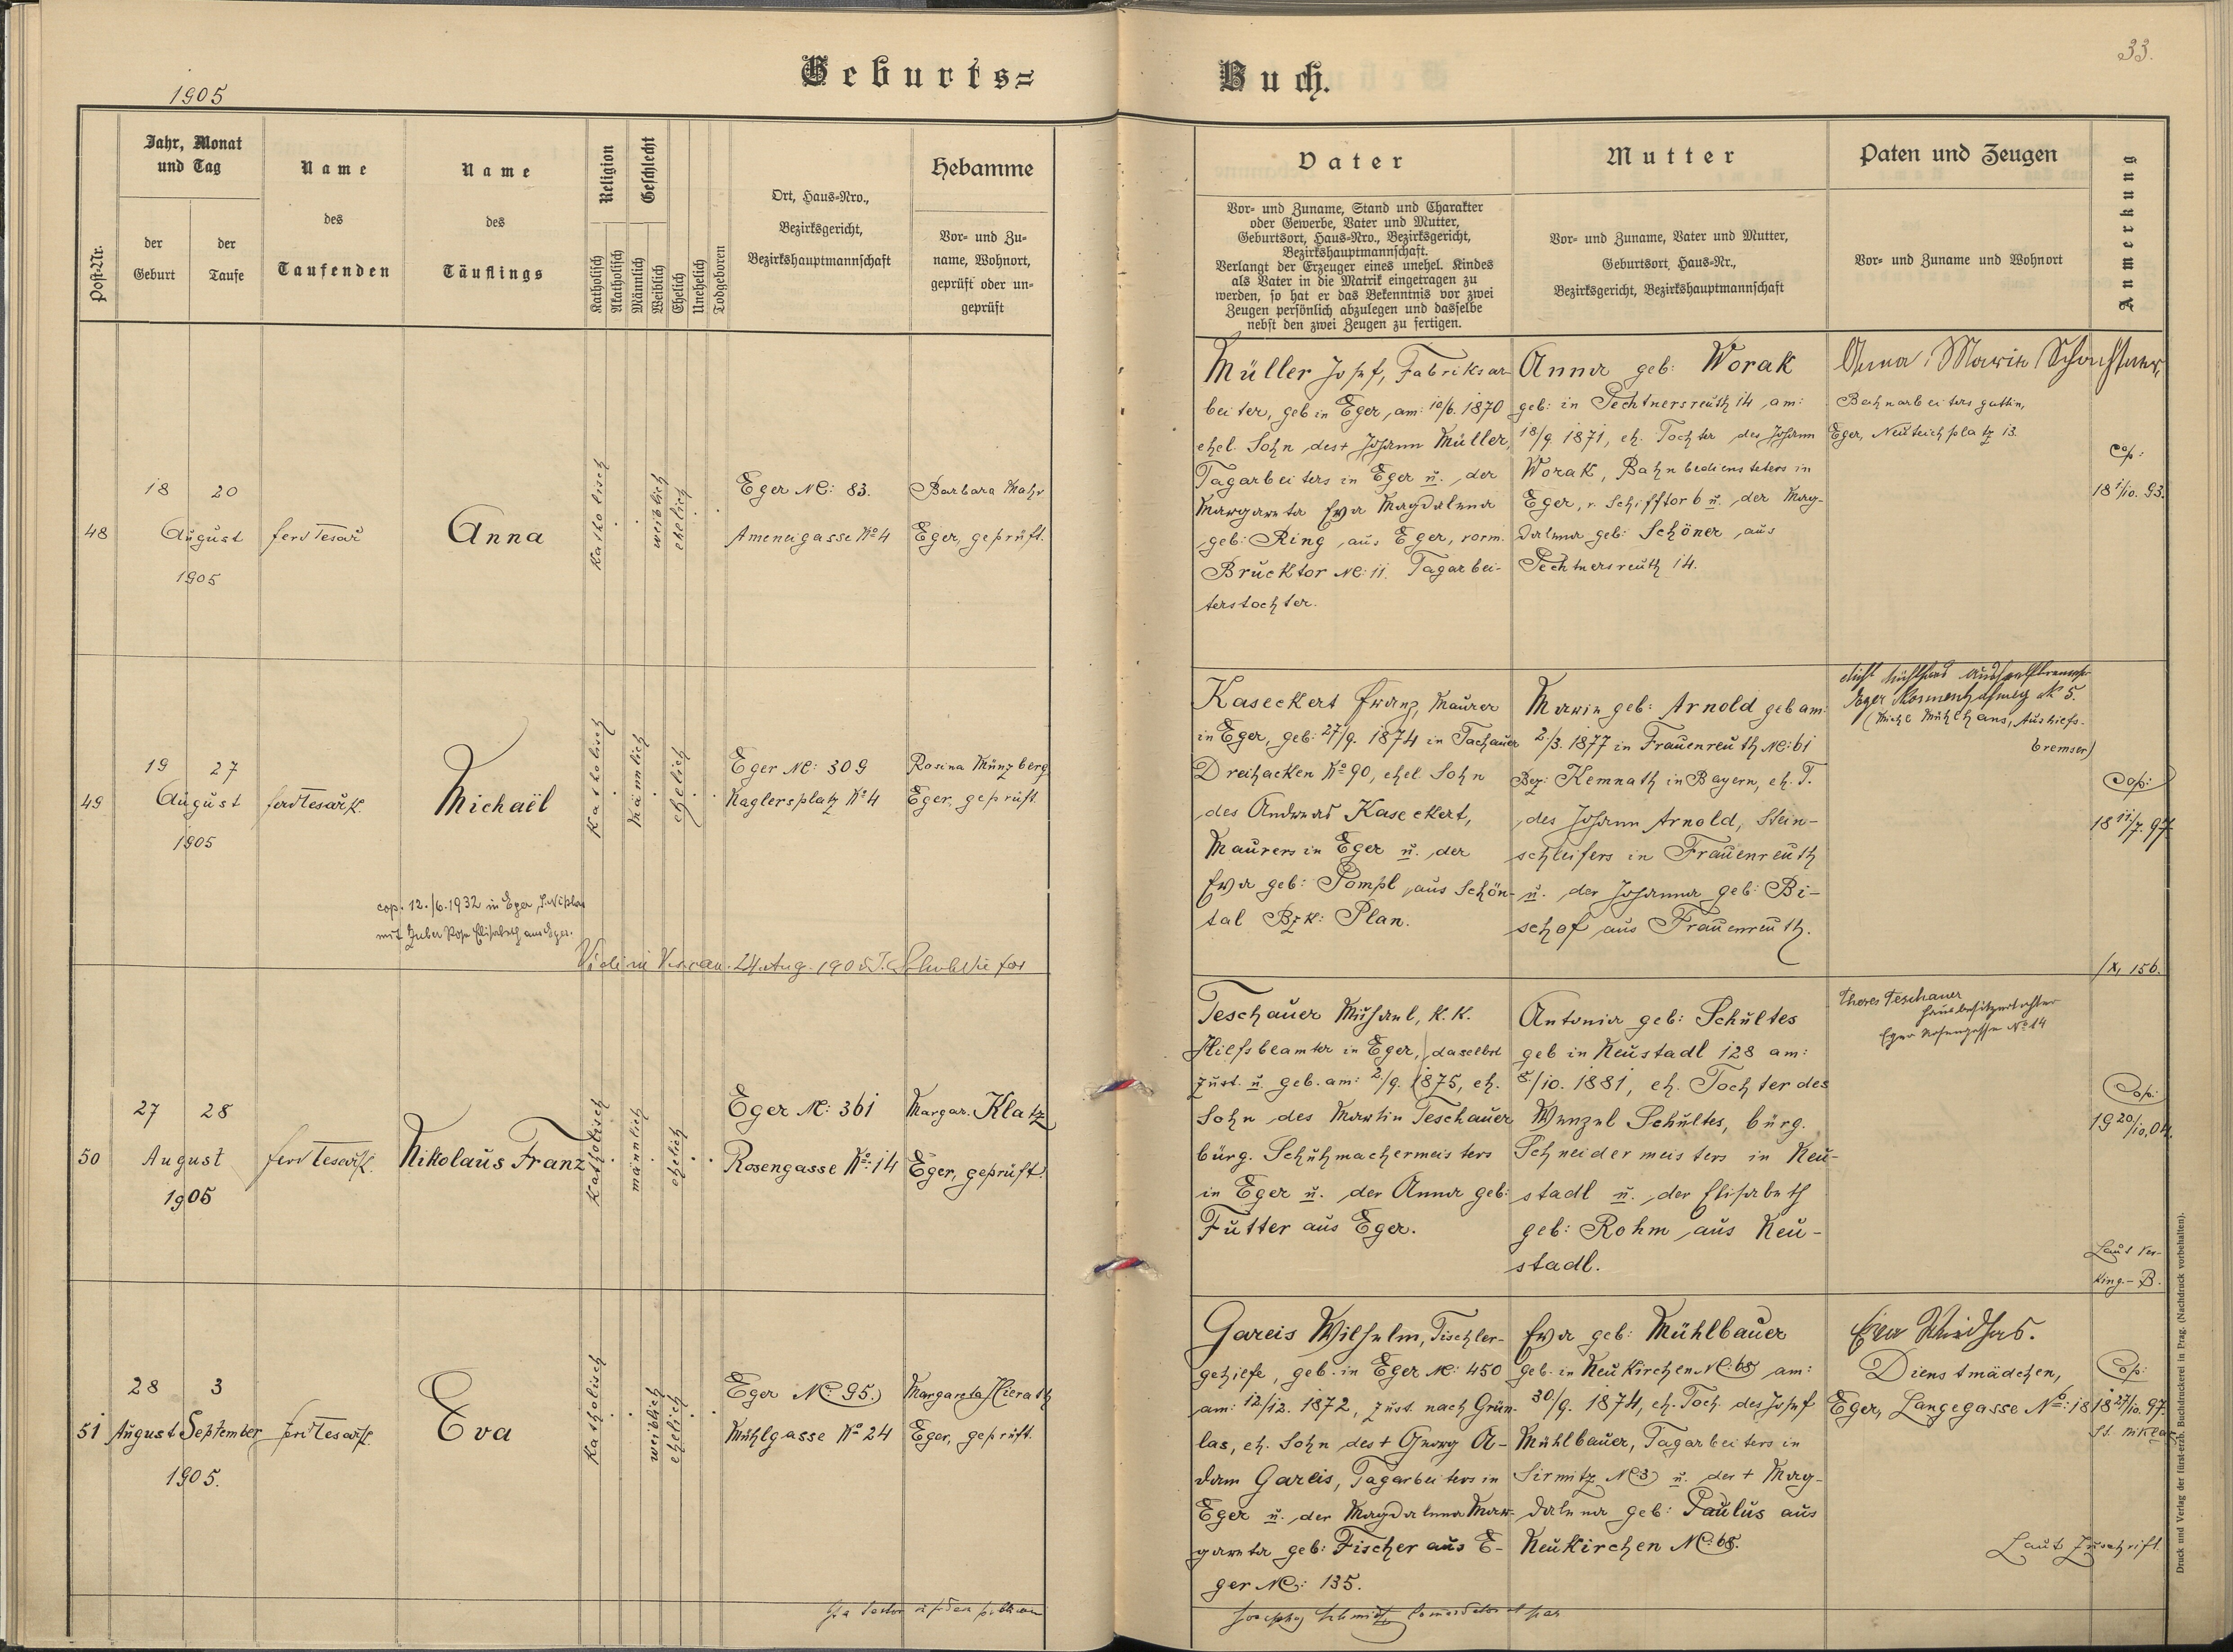 33.
Geburts=
Buch.
1905
Post-Nr.
Jahr, Monat
und Tag
der
Geburt
der
Taufe
Name
des
Taufenden
Name
des
Täuflings
Religion
Katholisch
Akatholisch
Geschlecht
Männlich
Weiblich
Ehelich
Unehelich
Todgeboren
Ort, Haus-Nro.,
Bezirksgericht,
Bezirkshauptmannschaft
Hebamme
Vor- und Zu-
name, Wohnort,
geprüft oder un-
geprüft
Vater
Vor- und Zuname, Stand und Charakter
oder Gewerbe, Vater und Mutter,
Geburtsort, Haus-Nro., Bezirksgericht,
Bezirkshauptmannschaft.
Verlangt der Erzeuger eines unehel. Kindes
als Vater in die Matrik eingetragen zu
werden, so hat er das Bekenntnis vor zwei
Zeugen persönlich abzulegen und dasselbe
nebst den zwei Zeugen zu fertigen.
Mutter
Vor- und Zuname, Vater und Mutter,
Geburtsort, Haus-Nr.,
Bezirksgericht, Bezirkshauptmannschaft
Paten und Zeugen
Vor- und Zuname und Wohnort
Anmerkung
48
18 20
August
1905
Anna
Katholisch
weiblich
ehelich
Eger Nc: 83.
Ameneigasse No 4
Barbara Mahr
Eger, geprüft.
Müller Josef, Fabriksar-
beiter, geb in Eger, am: 10/6. 1870
ehel. Sohn des + Johann Müller,
Tagarbeiters in Eger u. der
Margareta Eva Magdalena
geb: Ring aus Eger, vorm.
Brucktor Nc: 11. Tagarbei-
terstochter.
Anna geb: Worak
geb: in Pechtnersreuth 14 am:
18/9. 1871, eh. Tochter des Johann
Worak, Bahnbediensteters in
Eger, v. Schifftor 6 u. der Mag-
dalena geb: Schöner aus
Pechtnersreuth 14.
Anna Maria
Bahnarbeitersgattin,
Eger, Neuteichplatz 13.
cop:
18 1/10. 93.
49
19 27
August
1905
Michaël
Katholisch
männlich
ehelich
Eger Nc: 309
Kaglersplatz No 4
Rosina Münzberg
Eger, geprüft.
cop. 12./6.1932 in Eger,
mit Elisabeth aus Eger.
24. Aug. 1905
Kaseckert Franz, Maurer
in Eger, geb: 27/9. 1874 in Tachauer
Dreihacken No 90, ehel Sohn
des Andreas Kaseckert,
Maurers in Eger u. der
Eva geb: Pompl aus Schön-
tal Bzk: Plan.
Maria geb: Arnold geb am:
2./3. 1877 in Frauenreuth Nc: 61
Bez: Kemnath in Bayern, eh. T.
des Johann Arnold, Stein-
schleifers in Frauenreuth
u. der Johanna geb: Bi-
schof aus Frauenreuth.
Eger No 5.
(Michl Mühlhans, Aushilfs-
bremser)
Cop:
18 11/7. 97.
50
27 28
August
1905
Nikolaus Franz
Katholisch
männlich
ehelich
Eger Nc: 361
Rosengasse No: 14
Margar. Klatz
Eger, geprüft.
Teschauer Michael, K.K.
Hilfsbeamter in Eger, daselbst
zust. u. geb. am: 2/9. 1875, eh.
Sohn des Martin Teschauer
bürg. Schuhmachermeisters
in Eger u. der Anna geb:
Futter aus Eger.
Antonia geb: Schultes
geb in Neustadl 128 am:
8/10. 1881, eh. Tochter des
Wenzel Schultes, bürg.
Schneidermeisters in Neu-
stadl u. der Elisabeth
geb: Rohm aus Neu-
stadl.
Theres Teschauer
Hausbesitzerstochter
Eger Rosengasse No 14
156.
Cop:
19 20/10. 04.
Laut Ver-
künd.-B.
51
28 3
August September
1905.
Eva
Katholisch
weiblich
ehelich
Eger Nc: 95.
Mühlgasse No 24
Margareta Hierath
Eger, geprüft.
Gareis Wilhelm, Tischler-
gehilfe, geb. in Eger Nc: 450
am: 12/12. 1872, zust. nach Grün-
las, eh. Sohn des + Georg A-
dam Gareis, Tagarbeiters in
Eger u. der Magdalena Mar-
gareta geb: Fischer aus E-
ger Nc: 135.
Eva geb: Mühlbauer
geb. in Neukirchen Nc: 68 am:
30/9. 1874, eh. Toch. des Josef
Mühlbauer, Tagarbeiters in
Sirmitz Nc 3 u. der + Mag-
dalena geb: Paulus aus
Neukirchen Nc: 68.
Eva
Dienstmädchen,
Eger, Langegasse No: 18
Cop:
18 27/10. 97.
St. Niklas
Laut Zuschrift.
Schmidt
Druck und Verlag der fürst-erzb. Buchdruckerei in Prag. (Nachdruck vorbehalten).